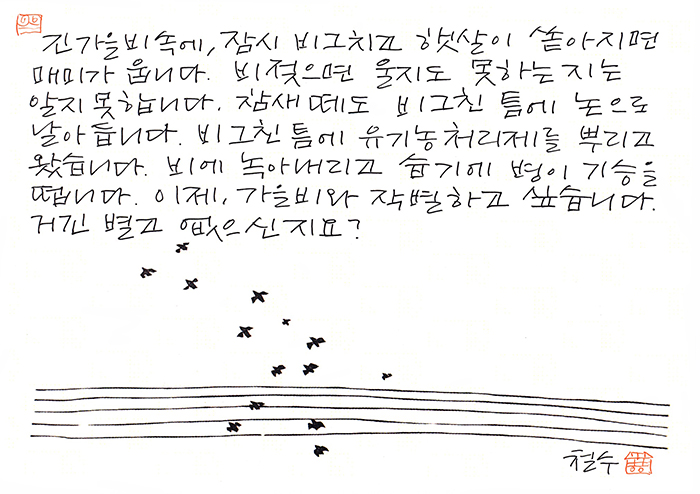 긴가을비속에, 잠시 비그치고 햇살이 쏟아지면
매미가 웁니다. 비젖으면 울지도 못하는지는
알지못합니다. 참새떼도 비그친 틈에 논으로
날아듭니다. 비그친틈에 유기농처리제를 뿌리고
왔습니다. 비에 녹아내리고 습기에 병이 기승을
떱니다. 이제, 가을비와 작별하고 싶습니다.
거긴 별고 없으신지요?
철수